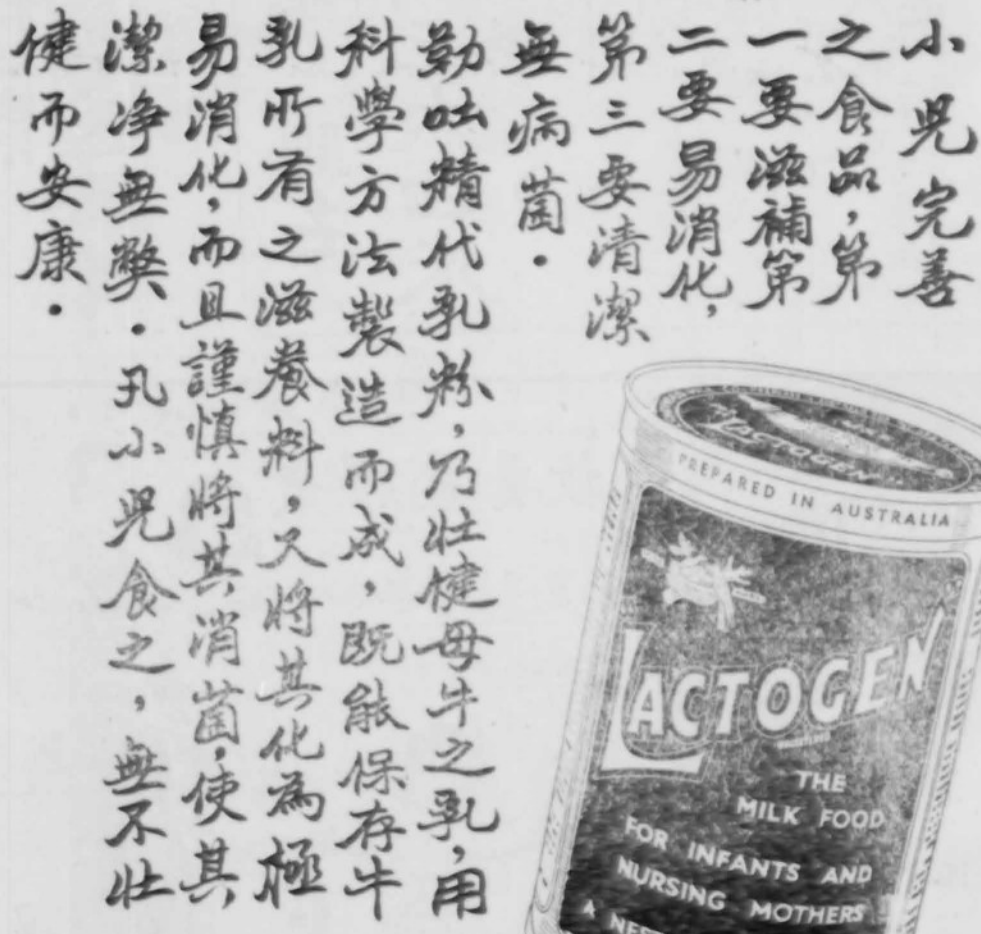 小兒完善
之食品，第
一要滋補第
二要易消化，
第三要清潔
無病菌．
勒吐精代乳粉，乃壯健母牛之乳，用
科學方法製造而成，既能保存牛
乳所有之滋養料，又將其化為極
易消化，而且謹慎將其消菌，使其
潔净無弊．凡小兒食之，無不壯
健而安康．
LACTOGEN
PREPARED IN AUSTRALIA
LACTOGEN
THE
MILK FOOD
FOR INFANTS AND
NURSING MOTHERS
A